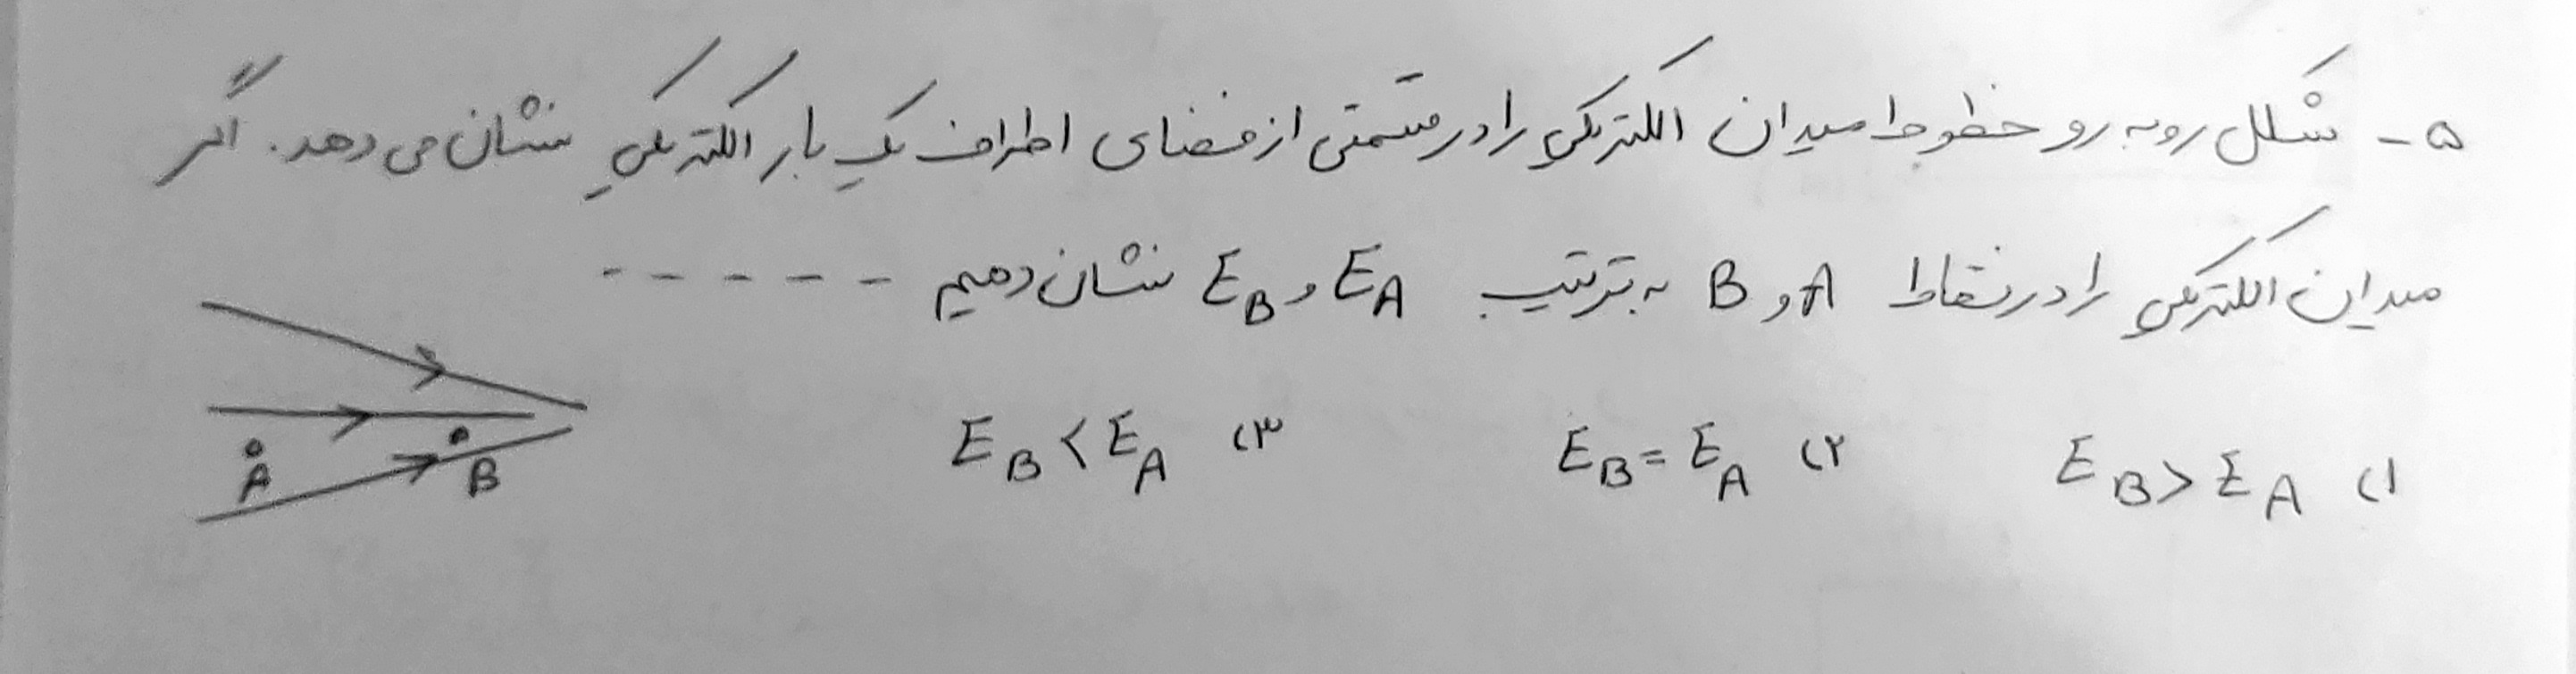 ۵- شکل روبه رو خطوط میدان الکتریکی را در قسمتی از فضای اطراف یک بار الکتریکی نشان می دهد. اگر
میدان الکتریکی را در نقاط A و B به ترتیب E_A و E_B نشان دهیم - - - - - -
۱) E_B > E_A ۲) E_B = E_A ۳) E_B < E_A
A B